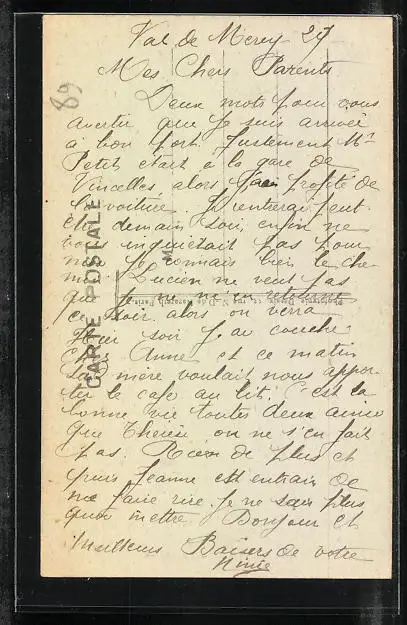 Val de Mercy 27
Mes Chers Parents
89
Deux mots pour vous
avertir que je suis arrivée
à bon port. Justement Mr
Petit était à la gare de
Vincelles, alors j'ai profité de
la voiture. Je rentrerai peut
être demain soir, enfin ne
vous inquiétait pas pour
moi je connais bien le che
min. Lucien ne veut pas
que je m'en retourne
ce soir alors on verra
Hier soir j'ai couché
Chez Anna et ce matin
sa mère voulait nous appor
ter le café au lit. C'est la
bonne vie toutes deux ainsi
que Thérèse on ne s'en fait
pas. Rien de plus et
puis Jeanne est entrain de
me faire rire je ne sais plus
quoi mettre. Bonjour et
Meilleurs Baisers de votre
Ninie
CARTE POSTALE